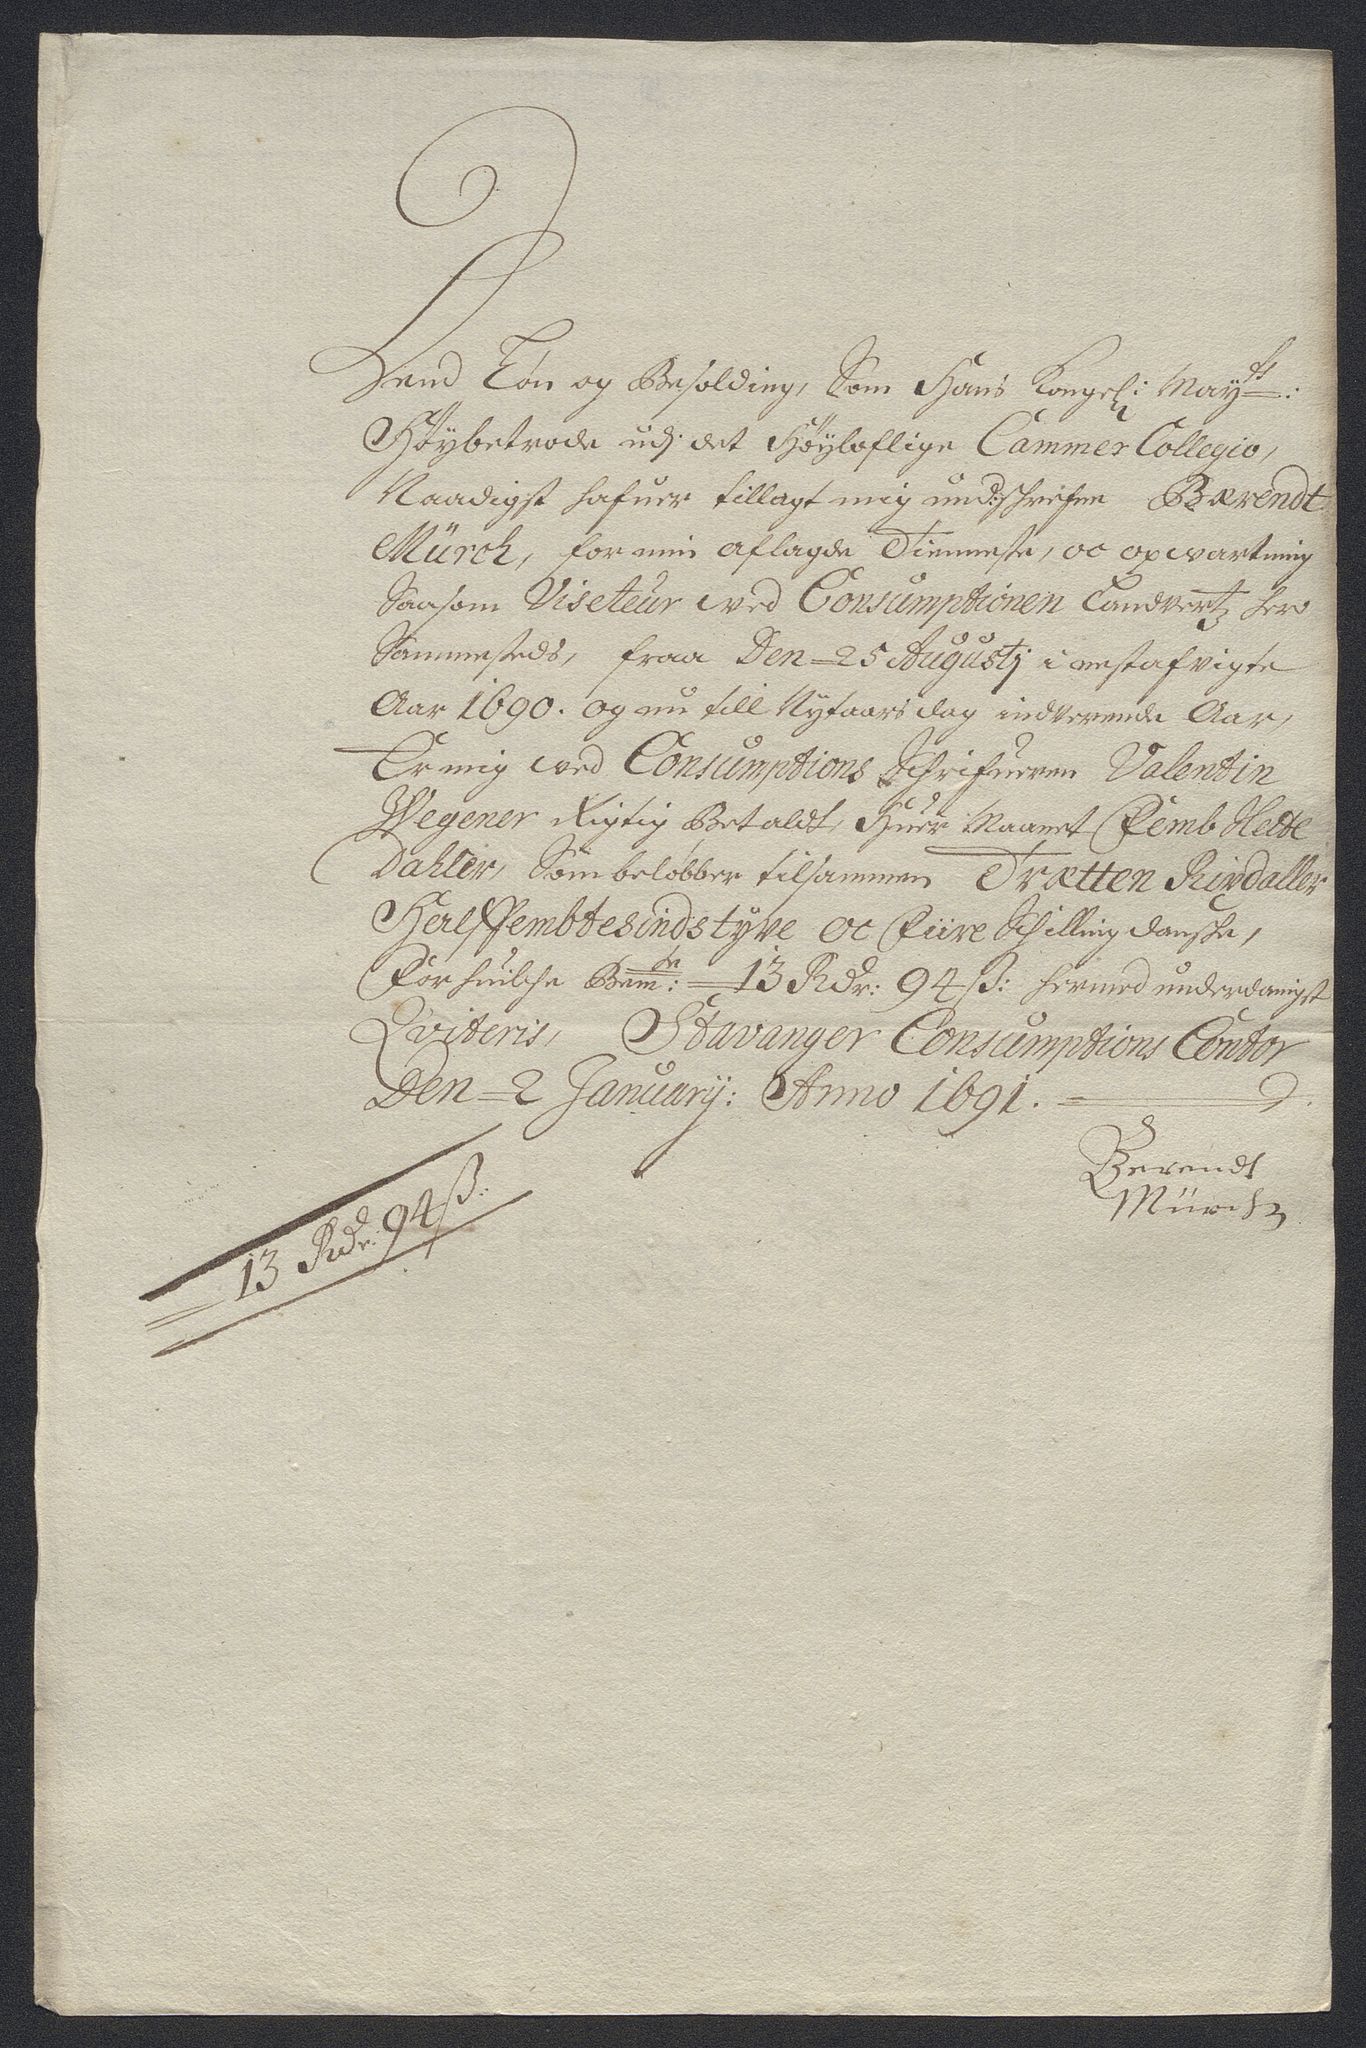 Dend Løn og Besolding, Som Hans Kongel: Mayts:
Høybetrode udj det Høyloflige Cammer Collegio,
Naadigst hafuer tillagt mig und:schrefne Bærendt
Mürch, for min aflagde Tienneste, oc opvartning
Saasom Viseteur ved Consumptionen Landvertz her
Sammesteds, fraa Den 25 Augustj i nestafvigte
Aar 1690. og nu till Nytaarsdag indverende Aar,
Er mig ved Consumptions Schrifueren Valentin
Wegener Rigtig Betaldt, Huer Maanet Femb Slette
Dahler, Som beløbber tilsammen Trætten Rixdaller
Half Fembtesindstyve oc Fiire Schilling danske,
For huilche Bemte: 13 Rdr: 94 ß: hermed underdanigst
Qviteris, Stavanger Consumptions Contor
Den 2 January: Anno 1691.
Berendt
Mürch
13 Rdr: 94 ß: